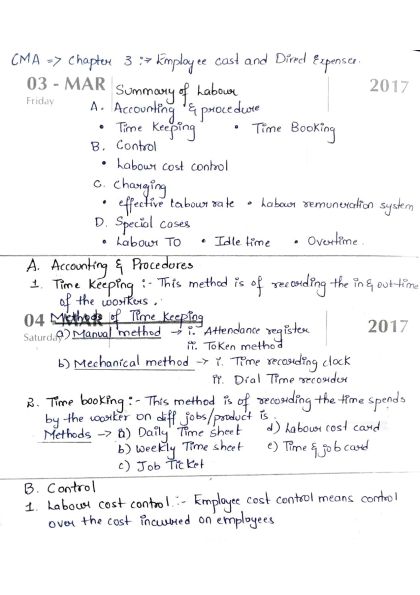 CMA => Chapter 3 :-> Employee cost and Direct Expenses.
03 - MAR Summary of Labour 2017
Friday
A. Accounting & procedure
• Time Keeping • Time Booking
B. Control
• Labour cost control
C. Charging
• effective labour rate • Labour remuneration system
D. Special cases
• Labour TO • Idle time • Overtime.
A. Accounting & Procedures
1. Time Keeping :- This method is of recording the in & out time
of the workers.
04 - MAR Methods of Time Keeping 2017
Saturday a) Manual method -> i. Attendance register
ii. Token method
b) Mechanical method -> i. Time recording clock
ii. Dial Time recorder
2. Time booking :- This method is of recording the time spends
by the worker on diff. jobs/product is.
Methods -> a) Daily Time sheet d) Labour cost card
b) Weekly Time sheet e) Time & job card
c) Job Ticket
B. Control
1. Labour cost control :- Employee cost control means control
over the cost incurred on employees